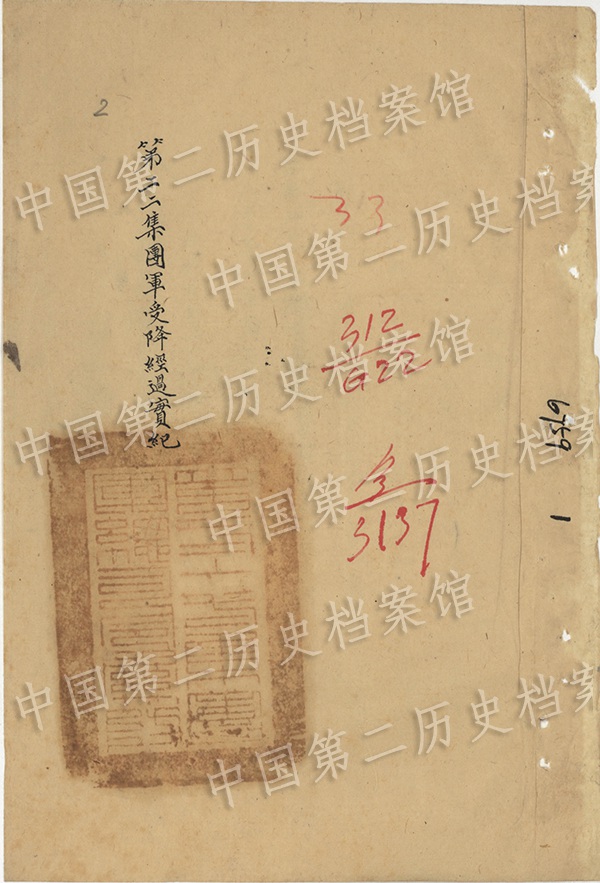 2
中国第二历史档案馆
中国第二历史档案
第二二集團軍受降經過實紀
33
312
G22
中国第二历史档案馆
中国第二历史档案
3137
1
中国第二历史档案馆
中国第二历史档案